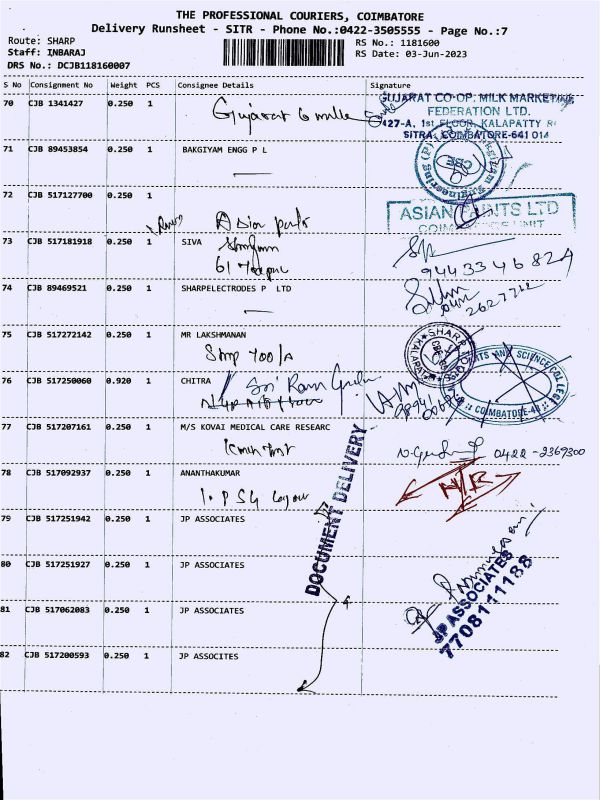 THE PROFESSIONAL COURIERS, COIMBATORE
Delivery Runsheet - SITR - Phone No.:0422-3505555 - Page No.:7
Route: SHARP
Staff: INBARAJ
DRS No.: DCJB118160007
RS No.: 1181600
RS Date: 03-Jun-2023
S No Consignment No Weight PCS Consignee Details Signature
70 CJB 1341427 0.250 1
Gujarat
GUJARAT CO-OP. MILK MARKETING
FEDERATION LTD.
427-A, 1st FLOOR, KALAPATTY R
SITRA, COIMBATORE-641 014
71 CJB 89453854 0.250 1 BAKGIYAM ENGG P L
Engineering (P)
CBE
72 CJB 517127700 0.250 1
Asian paints
ASIAN PAINTS LTD
73 CJB 517181918 0.250 1 SIVA
94433 46824
74 CJB 89469521 0.250 1 SHARPELECTRODES P LTD
2627722
75 CJB 517272142 0.250 1 MR LAKSHMANAN
SHARP
KALAPATTI
ARTS AND SCIENCE COLLEGE
COIMBATORE-48
76 CJB 517250060 0.920 1 CHITRA
Sri Ram
77 CJB 517207161 0.250 1 M/S KOVAI MEDICAL CARE RESEARC
0422 - 2369300
78 CJB 517092937 0.250 1 ANANTHAKUMAR
PSG Layout
N/R
79 CJB 517251942 0.250 1 JP ASSOCIATES
DOCUMENT DELIVERY
80 CJB 517251927 0.250 1 JP ASSOCIATES
81 CJB 517062083 0.250 1 JP ASSOCIATES
JP ASSOCIATES
7708111188
82 CJB 517200593 0.250 1 JP ASSOCITES